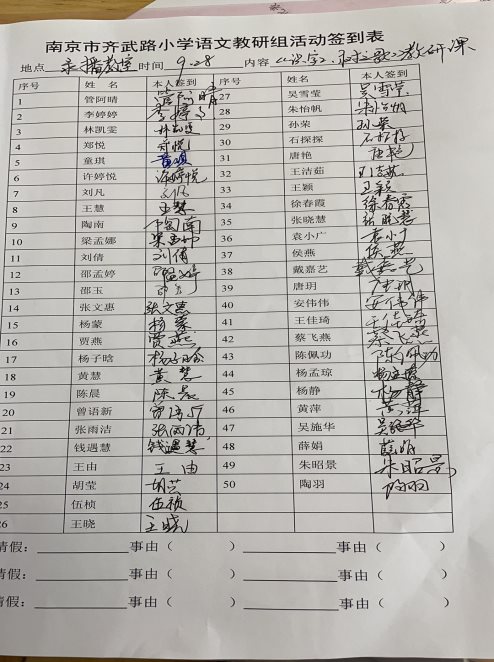 南京市齐武路小学语文教研组活动签到表
地点 录播教室 时间 9.28 内容 《识字》 教研课
序号 姓 名 本人签到 序号 姓 名 本人签到
1 管阿晴 管阿晴 27 吴雪莹 吴雪莹
2 李婷婷 李婷婷 28 朱怡帆 朱怡帆
3 林凯雯 林凯雯 29 孙荣 孙荣
4 郑悦 郑悦 30 石探探 石探探
5 童琪 童琪 31 唐艳 唐艳
6 许婷悦 许婷悦 32 王洁茹 王洁茹
7 刘凡 刘凡 33 王颖 王颖
8 王慧 王慧 34 徐春霞 徐春霞
9 陶南 陶南 35 张晓慧 张晓慧
10 梁孟娜 梁孟娜 36 袁小广 袁小广
11 刘倩 刘倩 37 侯燕 侯燕
12 邵孟婷 邵孟婷 38 戴嘉艺 戴嘉艺
13 邵玉 邵玉 39 唐玥 唐玥
14 张文惠 张文惠 40 安伟伟 安伟伟
15 杨蒙 杨蒙 41 王佳琦 王佳琦
16 贾燕 贾燕 42 蔡飞燕 蔡飞燕
17 杨子晗 杨子晗 43 陈佩功 陈佩功
18 黄慧 黄慧 44 杨孟琼 杨孟琼
19 陈晨 陈晨 45 杨静 杨静
20 曾语新 曾语新 46 黄萍 黄萍
21 张雨洁 张雨洁 47 吴施华 吴施华
22 钱遇慧 钱遇慧 48 薛娟 薛娟
23 王由 王由 49 朱昭景 朱昭景
24 胡莹 胡莹 50 陶羽 陶羽
25 伍桢 伍桢
26 王晓 王晓
请假： 事由（ ） 事由（ ）
请假： 事由（ ） 事由（ ）
请假： 事由（ ） 事由（ ）